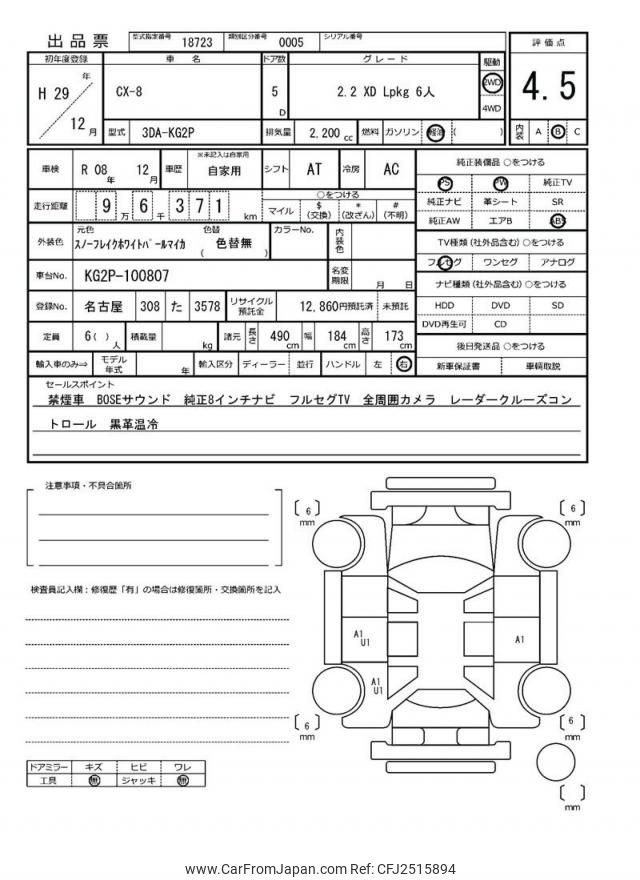 出品票 型式指定番号 18723 類別区分番号 0005 シリアル番号
初年度登録 車名 ドア数 グレード 駆動 評価点
H 29 年 12 月 CX-8 5 D 2.2 XD Lpkg 6人 2WD 4WD 4.5
型式 3DA-KG2P 排気量 2,200 cc 燃料 ガソリン 軽油 ( ) 内装 A B C
車検 R 08 年 12 月 車歴 ※未記入は自家用 自家用 シフト AT 冷房 AC
走行距離 9 万 6 千 3 7 1 km ○をつける マイル $ (交換) * (改ざん) # (不明)
外装色 元色 スノーフレイクホワイトパールマイカ 色替 ( 色替無 ) カラーNo. 内装色
車台No. KG2P-100807 名変期限 月 日
登録No. 名古屋 308 た 3578 リサイクル預託金 12,860円預託済 未預託
定員 6 ( ) 人 積載量 kg 諸元 長さ 490 cm 幅 184 cm 高さ 173 cm
輸入車のみ⇒ モデル年式 年 輸入区分 ディーラー 並行 ハンドル 左 右
純正装備品 ○をつける
PS PW 純正TV
純正ナビ 革シート SR
純正AW エアB ABS
TV種類 (社外品含む) ○をつける
フルセグ ワンセグ アナログ
ナビ種類 (社外品含む) ○をつける
HDD DVD SD
DVD再生可 CD
後日発送品 ○をつける
新車保証書 車輌取説
セールスポイント
禁煙車 BOSEサウンド 純正8インチナビ フルセグTV 全周囲カメラ レーダークルーズコン
トロール 黒革温冷
注意事項・不具合箇所
検査員記入欄：修復歴「有」の場合は修復箇所・交換箇所を記入
ドアミラー キズ ヒビ ワレ
工具 無 ジャッキ 無
[ 6 ] mm
[ 6 ] mm
A1
U1
A1
A1
U1
[ 6 ] mm
[ 6 ] mm
[ ] mm
www.CarFromJapan.com Ref: CFJ2515894